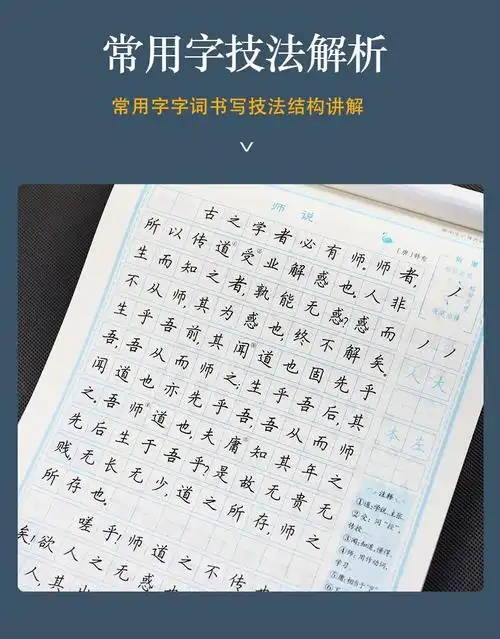 常用字技法解析
常用字字词书写技法结构讲解
师说
〔唐〕韩愈
古之学者必有师。师者，
所以传道受业解惑也。人非
生而知之者，孰能无惑？惑而
不从师，其为惑也，终不解矣。
生乎吾前，其闻道也固先乎
吾，吾从而师之；生乎吾后，其
闻道也亦先乎吾，吾从而师
之。吾师道也，夫庸知其年之
先后生于吾乎？是故无贵无
贱，无长无少，道之所存，师之
所存也。
嗟乎！师道之不传
矣！欲人之无惑
人，其出
人大
本左
注释
①道：学说，主张
②受：同“授”，
传授
③闻：知道，懂得。
④师：用作动词，
学习。